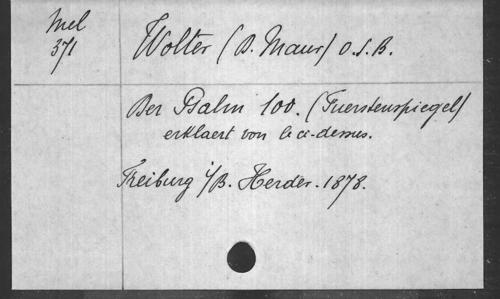 Mel
371
Wolter (D. Maur) O.S.B.
Der Psalm 100. (Fuerstenspiegel)
erklaert von le ci-dessus.
Freiburg i/B. Herder. 1878.